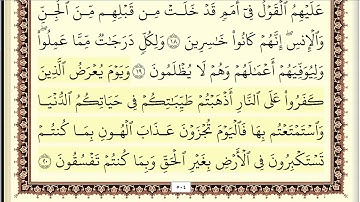 عَلَيْهِمُ ٱلْقَوْلُ فِىٓ أُمَمٍ قَدْ خَلَتْ مِن قَبْلِهِم مِّنَ ٱلْجِنِّ
وَٱلْإِنسِ ۖ إِنَّهُمْ كَانُوا۟ خَـٰسِرِينَ ١٨ وَلِكُلٍّ دَرَجَـٰتٌ مِّمَّا عَمِلُوا۟ ۖ
وَلِيُوَفِّيَهُمْ أَعْمَـٰلَهُمْ وَهُمْ لَا يُظْلَمُونَ ١٩ وَيَوْمَ يُعْرَضُ ٱلَّذِينَ
كَفَرُوا۟ عَلَى ٱلنَّارِ أَذْهَبْتُمْ طَيِّبَـٰتِكُمْ فِى حَيَاتِكُمُ ٱلدُّنْيَا
وَٱسْتَمْتَعْتُم بِهَا فَٱلْيَوْمَ تُجْزَوْنَ عَذَابَ ٱلْهُونِ بِمَا كُنتُمْ
تَسْتَكْبِرُونَ فِى ٱلْأَرْضِ بِغَيْرِ ٱلْحَقِّ وَبِمَا كُنتُمْ تَفْسُقُونَ ٢٠